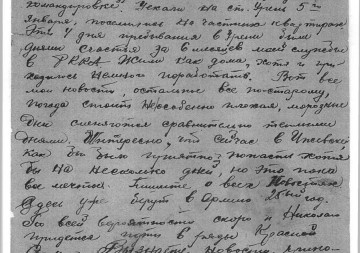 командировке. Уехали на ст. Урень 5ого
января, поселились на частных квартирах.
Эти 4 дня пребывания в Урени были
днями счастья за 6 месяцев моей службы
в РККА. Жили как дома, хотя и при-
ходилось немного поработать. Вот все
мои новости, остальное все постарому,
погода стоит неособенно плохая, морозные
дни сменяются сравнительно теплыми
днями. Интересно, что сейчас в
как бы было приятно попасть хотя
бы на несколько дней, но это пока
вы мечтой. Пишите о всех новостях
Здесь уже берут в армию
По всей вероятности скоро и Николаю
придется пойти в ряды Красной
новости